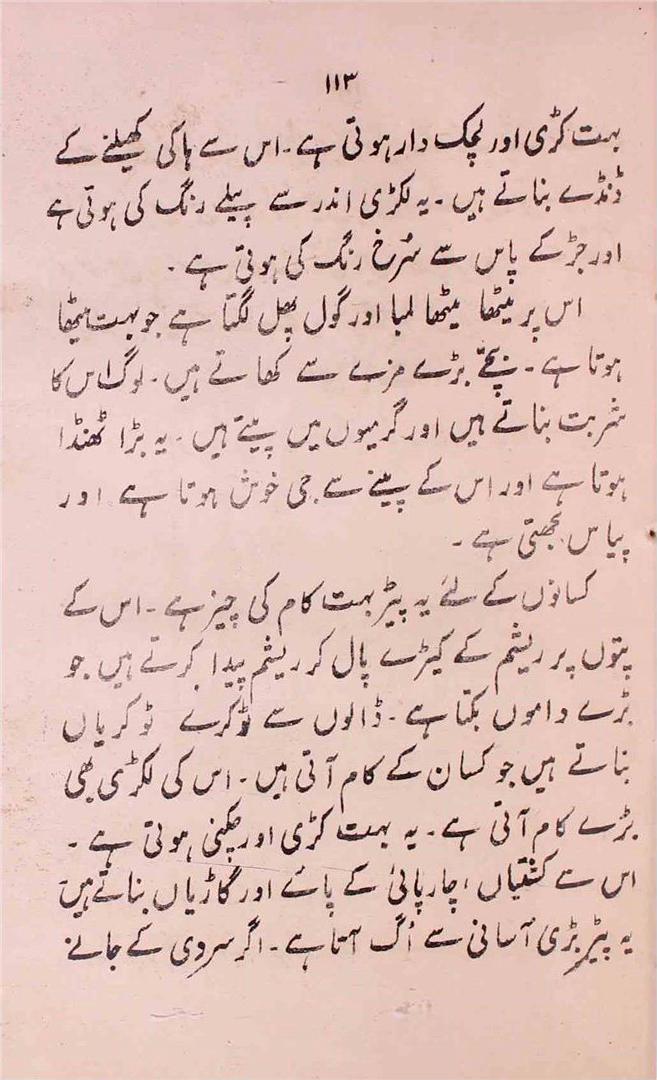 ۱۱۳
بہت کڑی اور لچک دار ہوتی ہے۔ اس سے ہاکی کھیلنے کے
ڈنڈے بناتے ہیں۔ یہ لکڑی اندر سے پیلے رنگ کی ہوتی ہے
اور جڑ کے پاس سے سُرخ رنگ کی ہوتی ہے۔
اس پر میٹھا میٹھا لمبا اور گول پھل لگتا ہے جو بہت میٹھا
ہوتا ہے۔ بچّے بڑے مزے سے کھاتے ہیں۔ لوگ اس کا
شربت بناتے ہیں اور گرمیوں میں پیتے ہیں۔ یہ بڑا ٹھنڈا
ہوتا ہے اور اس کے پینے سے جی خوش ہوتا ہے اور
پیاس بجھتی ہے۔
کسانوں کے لئے یہ پیڑ بہت کام کی چیز ہے۔ اس کے
پتوں پر ریشم کے کیڑے پال کر ریشم پیدا کرتے ہیں جو
بڑے داموں بکتا ہے۔ ڈالوں سے ٹوکرے ٹوکریاں
بناتے ہیں جو کسان کے کام آتی ہیں۔ اس کی لکڑی بھی
بڑے کام آتی ہے۔ یہ بہت کڑی اور چکنی ہوتی ہے۔
اس سے کشتیاں، چارپائی کے پائے اور گاڑیاں بناتے ہیں
یہ پیڑ بڑی آسانی سے اُگ آتا ہے۔ اگر سردی کے جانے